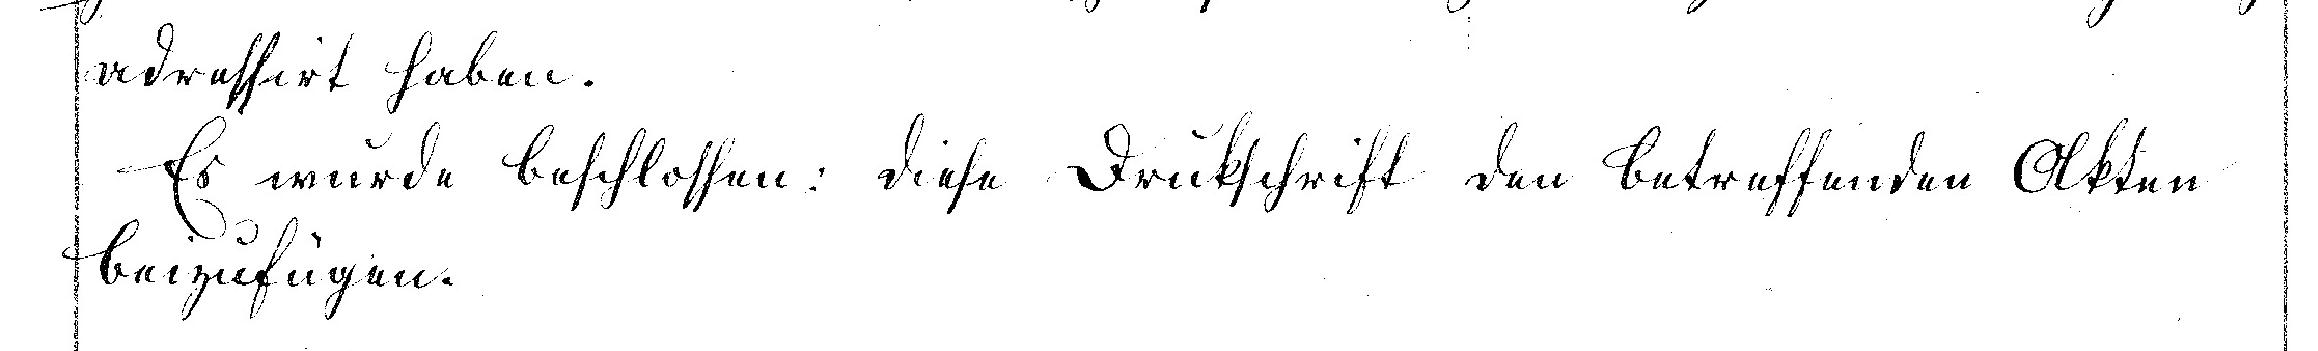 adressirt haben.
Es wurde beschlossen: diese Drukschrift den betreffenden Akten
beizufügen.